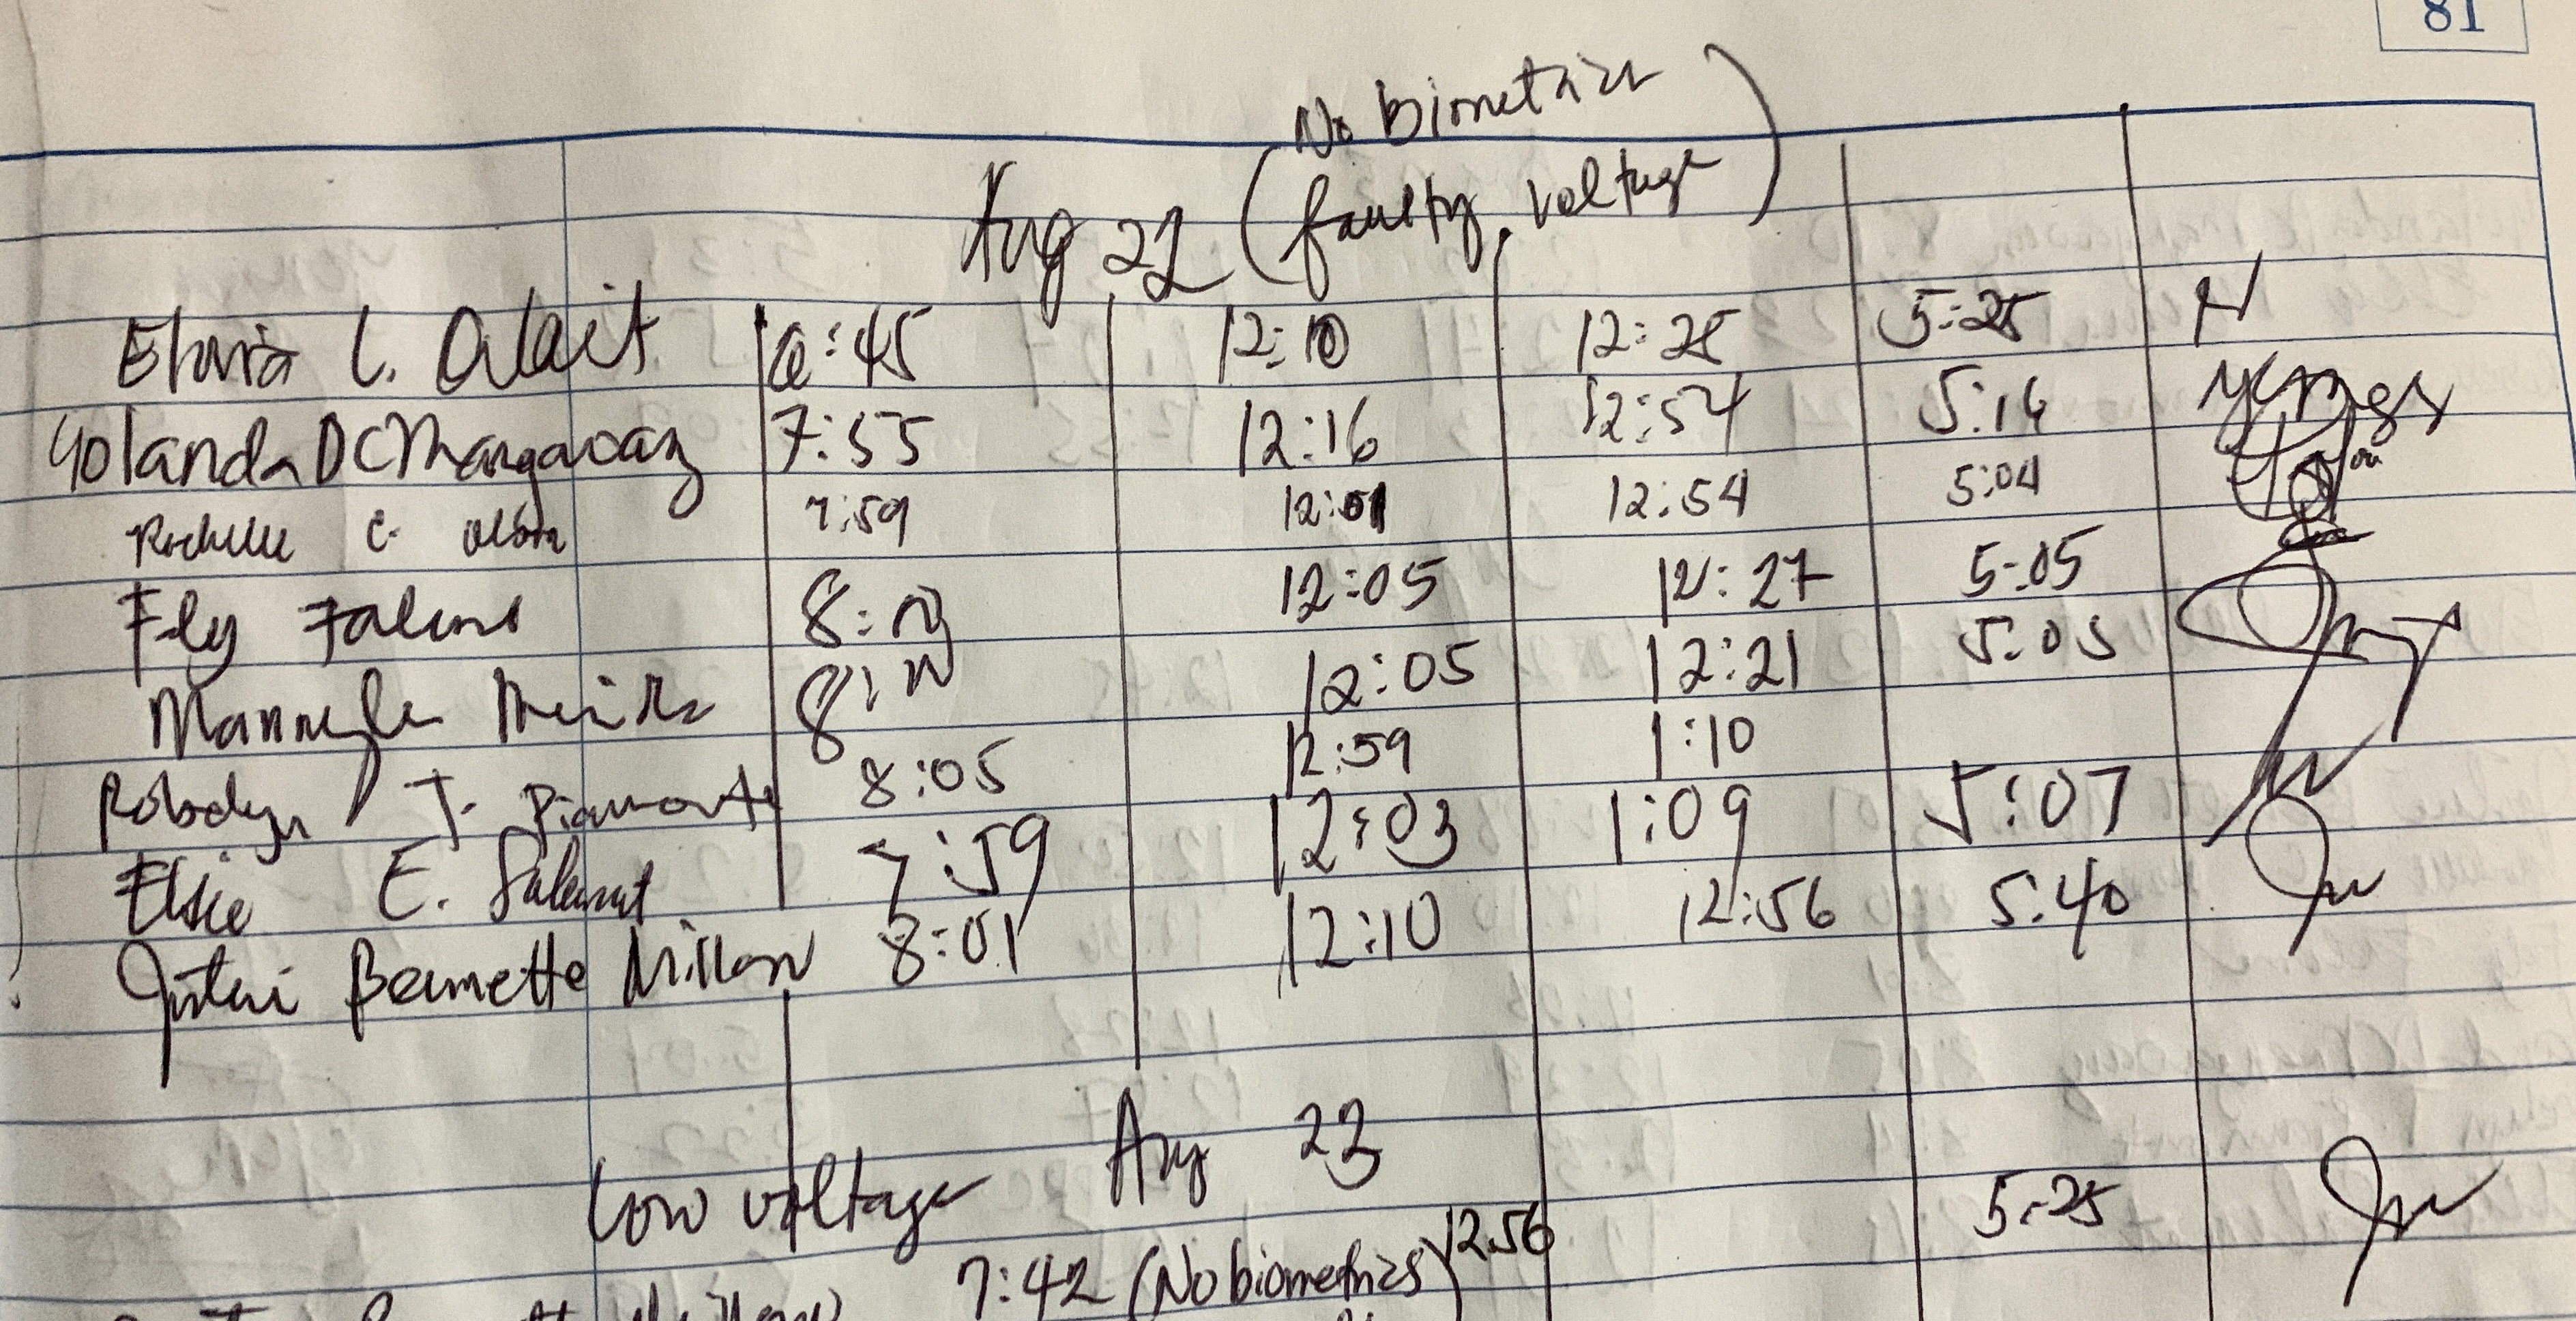 81
No biometrics
Aug 22 (faulty voltage)
Elvira L. Alait 6:45 12:10 12:25 5:25
Yolanda DC Mangaoang 7:55 12:16 12:54 5:16
Rochelle C. 7:59 12:01 12:54 5:04
Fely 8: 12:05 12:27 5:05
8: 12:05 12:21 5:05
Robelyn T. Piamonte 8:05 12:59 1:10
Elsie E. Salamat 7:59 12:03 1:09 5:07
Bernette Millan 8:01 12:10 12:56 5:40
Aug 23
low voltage
7:42 (No biometrics) 1256 5:25